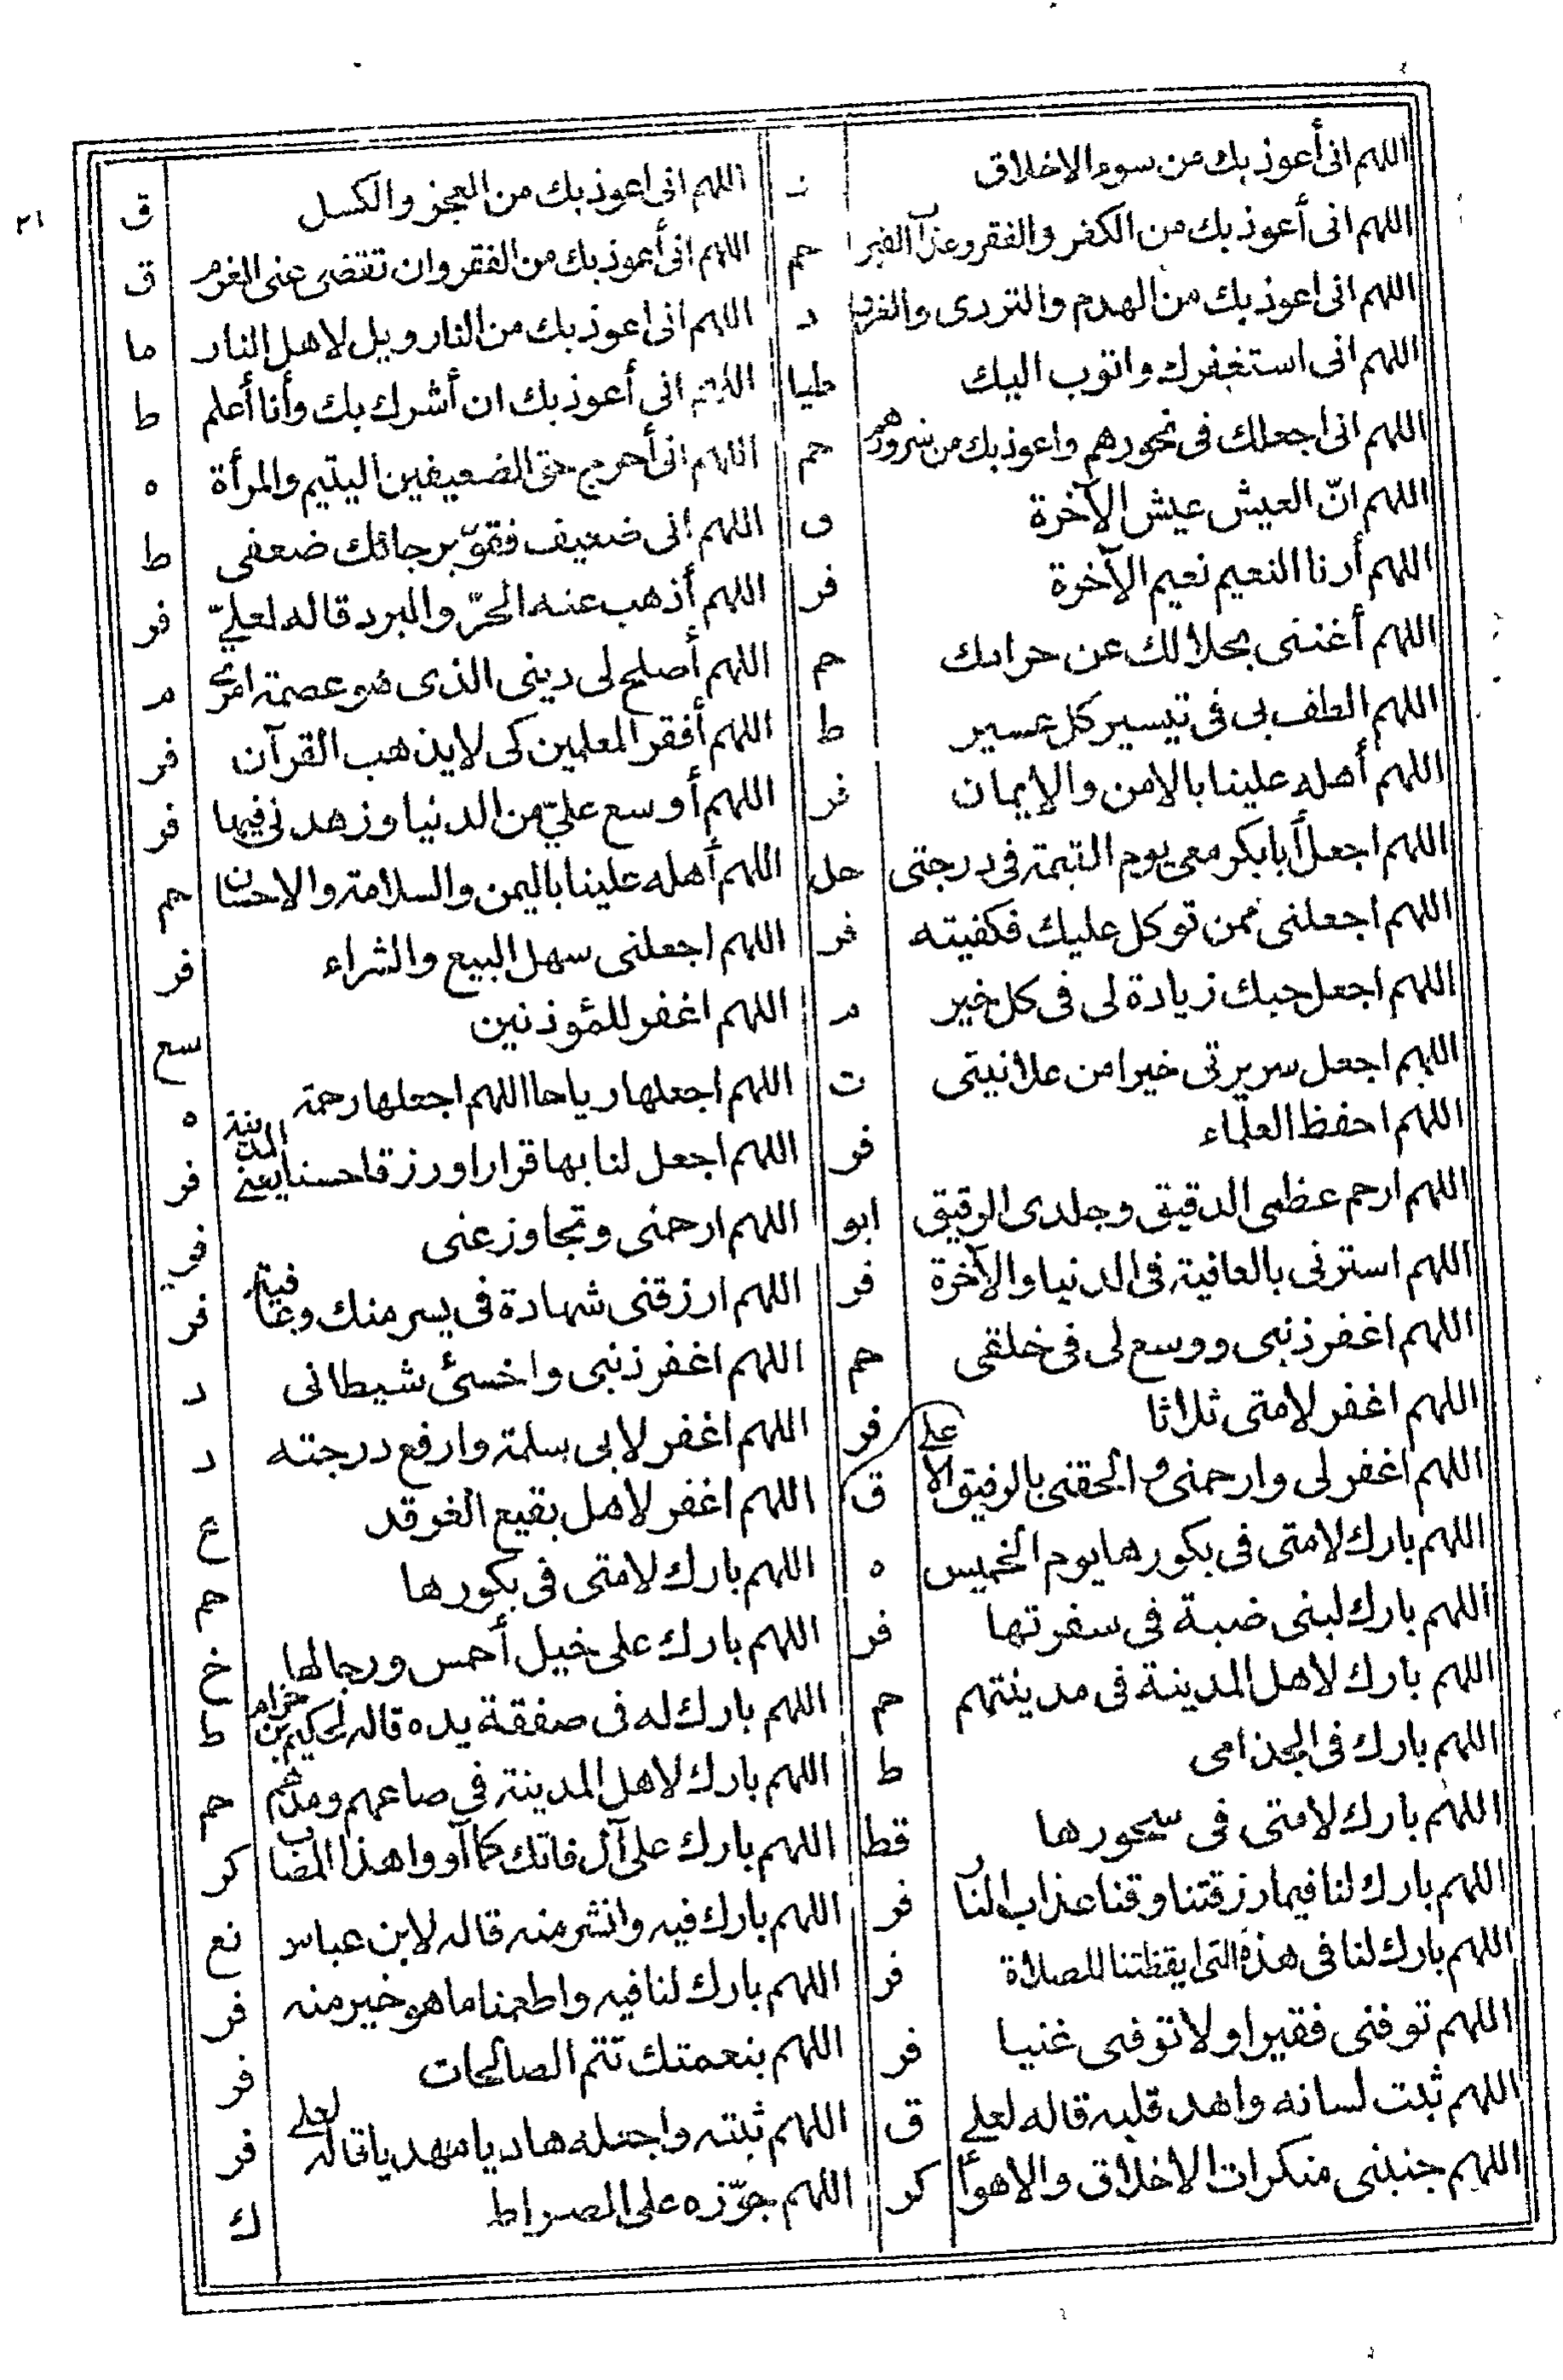 ٢١
اللهم انى أعوذ بك من سوء الاخلاق ن
اللهم انى أعوذ بك من الكفر والفقر وعذاب القبر حم
اللهم انى اعوذ بك من الهدم والتردى والغرق د
اللهم انى استغفرك واتوب اليك طيا
اللهم انى اجعلك فى نحورهم واعوذ بك من شرورهم حم
اللهم انّ العيش عيش الآخرة ق
اللهم أرنا النعيم نعيم الآخرة فر
اللهم أغننى بحلالك عن حرامك حم
اللهم الطف بى فى تيسير كل عسير ط
اللهم أهله علينا بالامن والإيمان فر
اللهم اجعل أبا بكر معى يوم القيمة فى درجتى حل
اللهم اجعلنى ممن توكل عليك فكفيته فر
اللهم اجعل حبك زيادة لى فى كل خير م
اللهم اجعل سريرتى خيرا من علانيتى ت
اللهم احفظ العلماء فر
اللهم ارحم عظمى الدقيق وجلدى الرقيق ابو
اللهم استرنى بالعافية فى الدنيا والآخرة فر
اللهم اغفر ذنبى ووسع لى فى خلقى حم
اللهم اغفر لامتى ثلاثا فر
اللهم اغفر لى وارحمنى والحقنى بالرفيق الاعلى ق
اللهم بارك لامتى فى بكورها يوم الخميس ه
اللهم بارك لبنى ضبة فى سفرتها فر
اللهم بارك لاهل المدينة فى مدينتهم حم
اللهم بارك فى الجذامى ط
اللهم بارك لامتى فى سحورها قط
اللهم بارك لنا فيما رزقتنا وقنا عذاب النار فر
اللهم بارك لنا فى هذه التى ايقظتنا للصلاة فر
اللهم توفنى فقيرا ولا توفنى غنيا فر
اللهم ثبت لسانه واهد قلبه قاله لعلى ق
اللهم جنبنى منكرات الاخلاق والاهوأ كر
اللهم انى اعوذ بك من العجز والكسل ق
اللهم انى أعوذ بك من الفقر وان تقتضى عنى الغرم ق
اللهم انى اعوذ بك من النار ويل لاهل النار ما
اللهم انى أعوذ بك ان أشرك بك وأنا أعلم ط
اللهم انى أحرج حق الضعيفين اليتيم والمرأة ه
اللهم انى ضعيف فقوّ برجائك ضعفى ط
اللهم أذهب عنه الحرّ والبرد قاله لعليّ فر
اللهم أصلح لى دينى الذى هو عصمة امرى م
اللهم أفقر المعلمين كى لا يذهب القرآن فر
اللهم أوسع علىّ من الدنيا وزهدنى فيها فر
اللهم أهله علينا باليمن والسلامة والاحسان حم
اللهم اجعلنى سهل البيع والشراء فر
اللهم اغفر للمؤذنين سع
اللهم اجعلها رياحا اللهم اجعلها رحمة ه
اللهم اجعل لنا بها قرارا ورزقا حسنا يعنى المدينة فر
اللهم ارحمنى وتجاوز عنى فر
اللهم ارزقنى شهادة فى يسر منك وعافية فر
اللهم اغفر ذنبى واخسئ شيطانى د
اللهم اغفر لابى سلمة وارفع درجته د
اللهم اغفر لاهل بقيع الغرقد ع
اللهم بارك لامتى فى بكورها حم
اللهم بارك على خيل أحمس ورجالها خ
اللهم بارك له فى صفقة يده قاله لحكيم بن حزام ط
اللهم بارك لاهل المدينة فى صاعهم ومدهم حم
اللهم بارك على آل فاتك كما آووا هذا المصاب كر
اللهم بارك فيه وانشر منه قاله لابن عباس نع
اللهم بارك لنا فيه واطعمنا ما هو خير منه فر
اللهم بنعمتك تتم الصالحات فر
اللهم ثبته واجعله هاديا مهديا قاله لعلى فر
اللهم جوّزه على الصراط ك